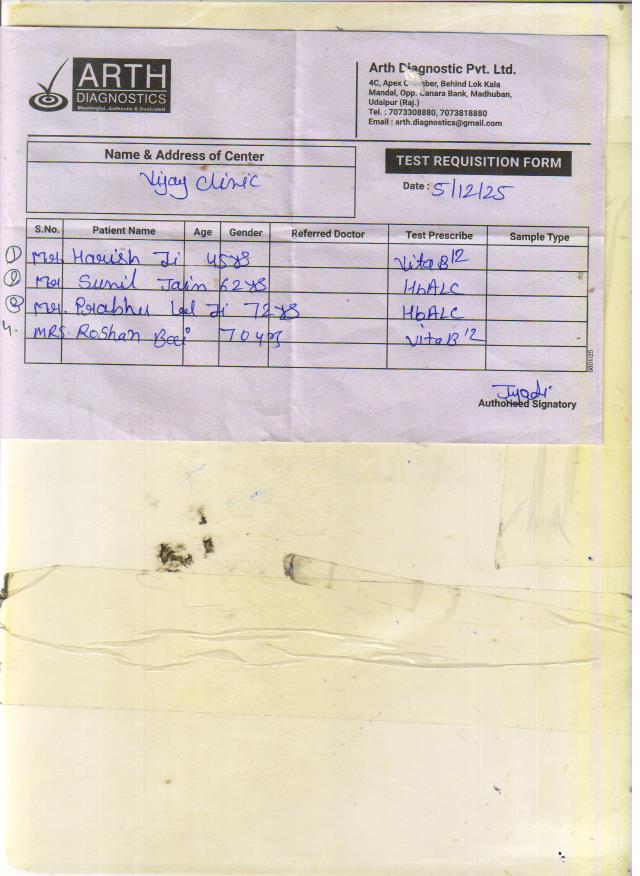 ARTH
DIAGNOSTICS
Meaningful, Authentic & Dedicated
Arth Diagnostic Pvt. Ltd.
4C, Apex Chamber, Behind Lok Kala
Mandal, Opp. Canara Bank, Madhuban,
Udaipur (Raj.)
Tel. : 7073308880, 7073818880
Email : arth.diagnostics@gmail.com
Name & Address of Center
Vijay Clinic
TEST REQUISITION FORM
Date : 5/12/25
S.No. Patient Name Age Gender Referred Doctor Test Prescribe Sample Type
① Mr. Harish Ji 45 yrs Vita B12
② Mr Sunil Jain 62 yrs HbALC
③ Mr. Prabhu Lal Ji 72 yrs HbALC
4. MRS. Roshan Bai 70 yrs Vita B12
0001/25
Jyoti
Authorised Signatory